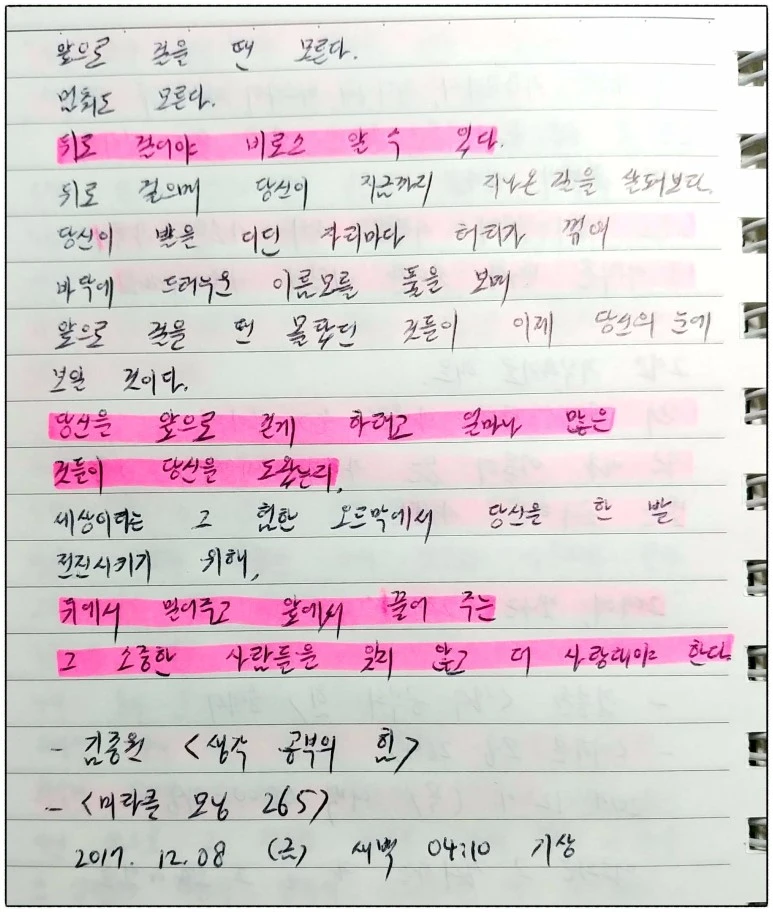 앞으로 걸을 땐 모른다.
멈춰도 모른다.
뒤로 걸어야 비로소 알 수 있다.
뒤로 걸으며 당신이 지금까지 지나온 길을 살펴보다.
당신이 발을 디딘 자리마다 허리가 꺾여
바닥에 드러누운 이름모를 풀을 보며
앞으로 걸을 땐 몰랐던 것들이 이제 당신의 눈에
보일 것이다.
당신을 앞으로 걷게 하려고 얼마나 많은
것들이 당신을 도왔는지,
세상이라는 그 험한 오르막에서 당신을 한 발
전진시키기 위해,
뒤에서 밀어주고 앞에서 끌어 주는
그 소중한 사람들을 잊지 않고 더 사랑해야 한다.
- 김종원 <생각 공부의 힘>
- <미라클 모닝 265>
2017. 12. 08 (금) 새벽 04:10 기상